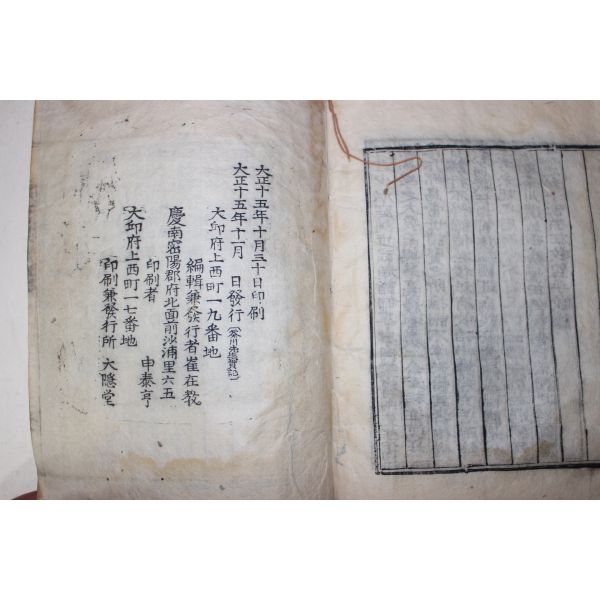 大正十五年十月三十日印刷
大正十五年十一月 日發行
大邱府上西町一九番地
編輯兼發行者崔在敎
慶南密陽郡府北面前沙浦里六五
印刷者 申泰亨
大邱府上西町一七番地
印刷兼發行所 大隱堂